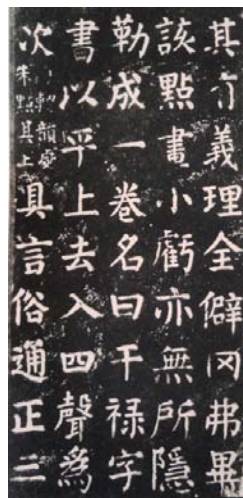 其有義理全僻罔弗畢
該點畫小虧亦無所隱
勒成一卷名曰干禄字
書以平上去入四聲為
次轉韻處朱點其上具言俗通正三